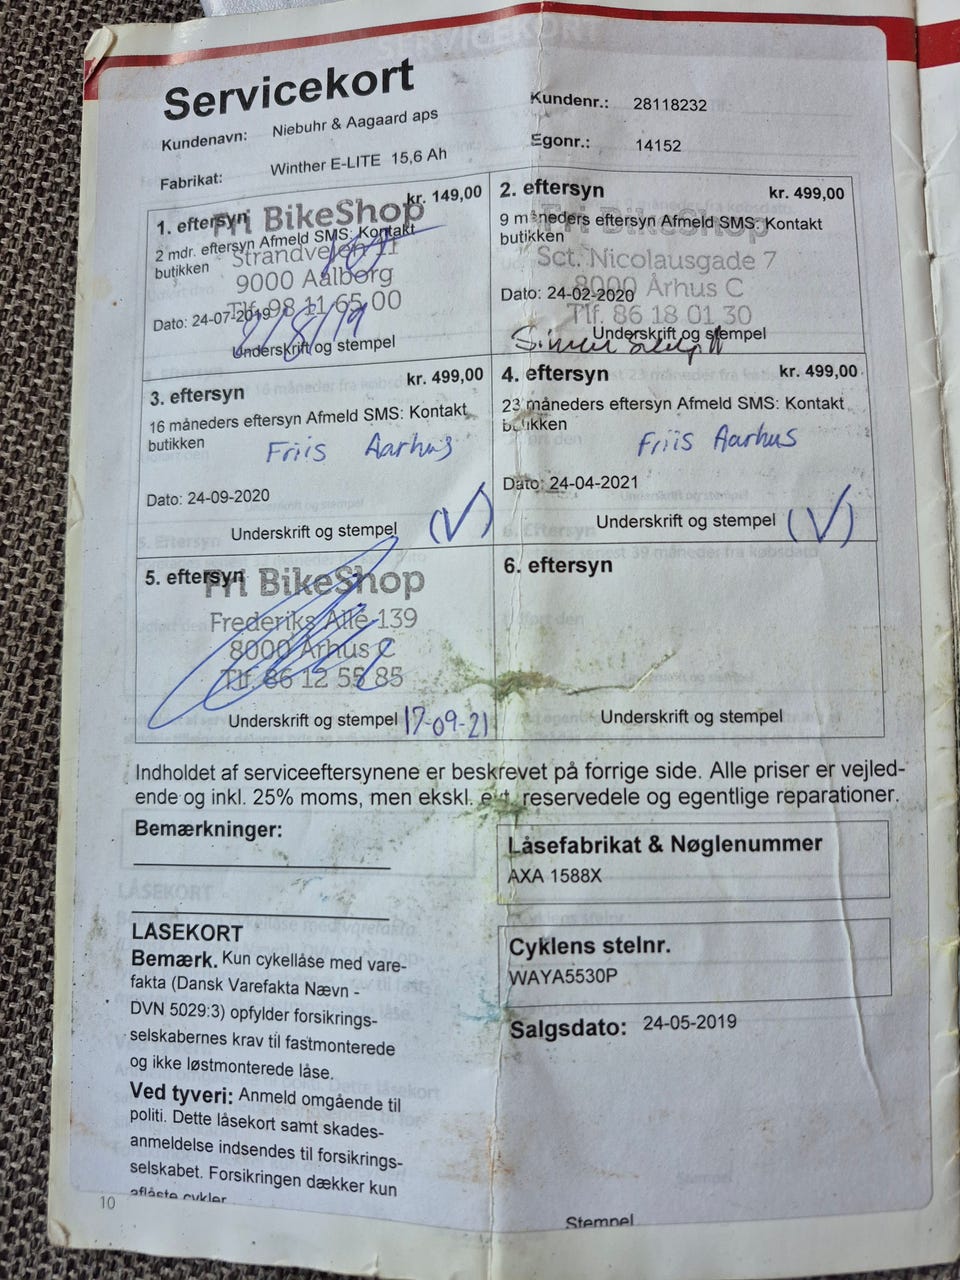 Servicekort
Kundenavn: Niebuhr & Aagaard aps
Kundenr.: 28118232
Fabrikat: Winther E-LITE 15,6 Ah
Egonr.: 14152
1. eftersyn kr. 149,00
Fri BikeShop
2 mdr. eftersyn Afmeld SMS: Kontakt
butikken
Strandvejen 11
9000 Aalborg
Tlf. 98 11 65 00
Dato: 24-07-2019
2/8/19
Underskrift og stempel
2. eftersyn kr. 499,00
Fri BikeShop
9 måneders eftersyn Afmeld SMS: Kontakt
butikken
Sct. Nicolausgade 7
8000 Århus C
Dato: 24-02-2020
Tlf. 86 18 01 30
Underskrift og stempel
3. eftersyn kr. 499,00
16 måneders eftersyn Afmeld SMS: Kontakt
butikken
Friis Aarhus
Dato: 24-09-2020
Underskrift og stempel (V)
4. eftersyn kr. 499,00
23 måneders eftersyn Afmeld SMS: Kontakt
butikken
Friis Aarhus
Dato: 24-04-2021
Underskrift og stempel (V)
5. eftersyn
Fri BikeShop
Frederiks Allé 139
8000 Århus C
Tlf. 86 12 55 85
Underskrift og stempel 17-09-21
6. eftersyn
Underskrift og stempel
Indholdet af serviceeftersynene er beskrevet på forrige side. Alle priser er vejled-
ende og inkl. 25% moms, men ekskl. evt. reservedele og egentlige reparationer.
Bemærkninger:
Låsefabrikat & Nøglenummer
AXA 1588X
LÅSEKORT
Bemærk. Kun cykellåse med vare-
fakta (Dansk Varefakta Nævn -
DVN 5029:3) opfylder forsikrings-
selskabernes krav til fastmonterede
og ikke løstmonterede låse.
Ved tyveri: Anmeld omgående til
politi. Dette låsekort samt skades-
anmeldelse indsendes til forsikrings-
selskabet. Forsikringen dækker kun
aflåste cykler
Cyklens stelnr.
WAYA5530P
Salgsdato: 24-05-2019
Stempel
10